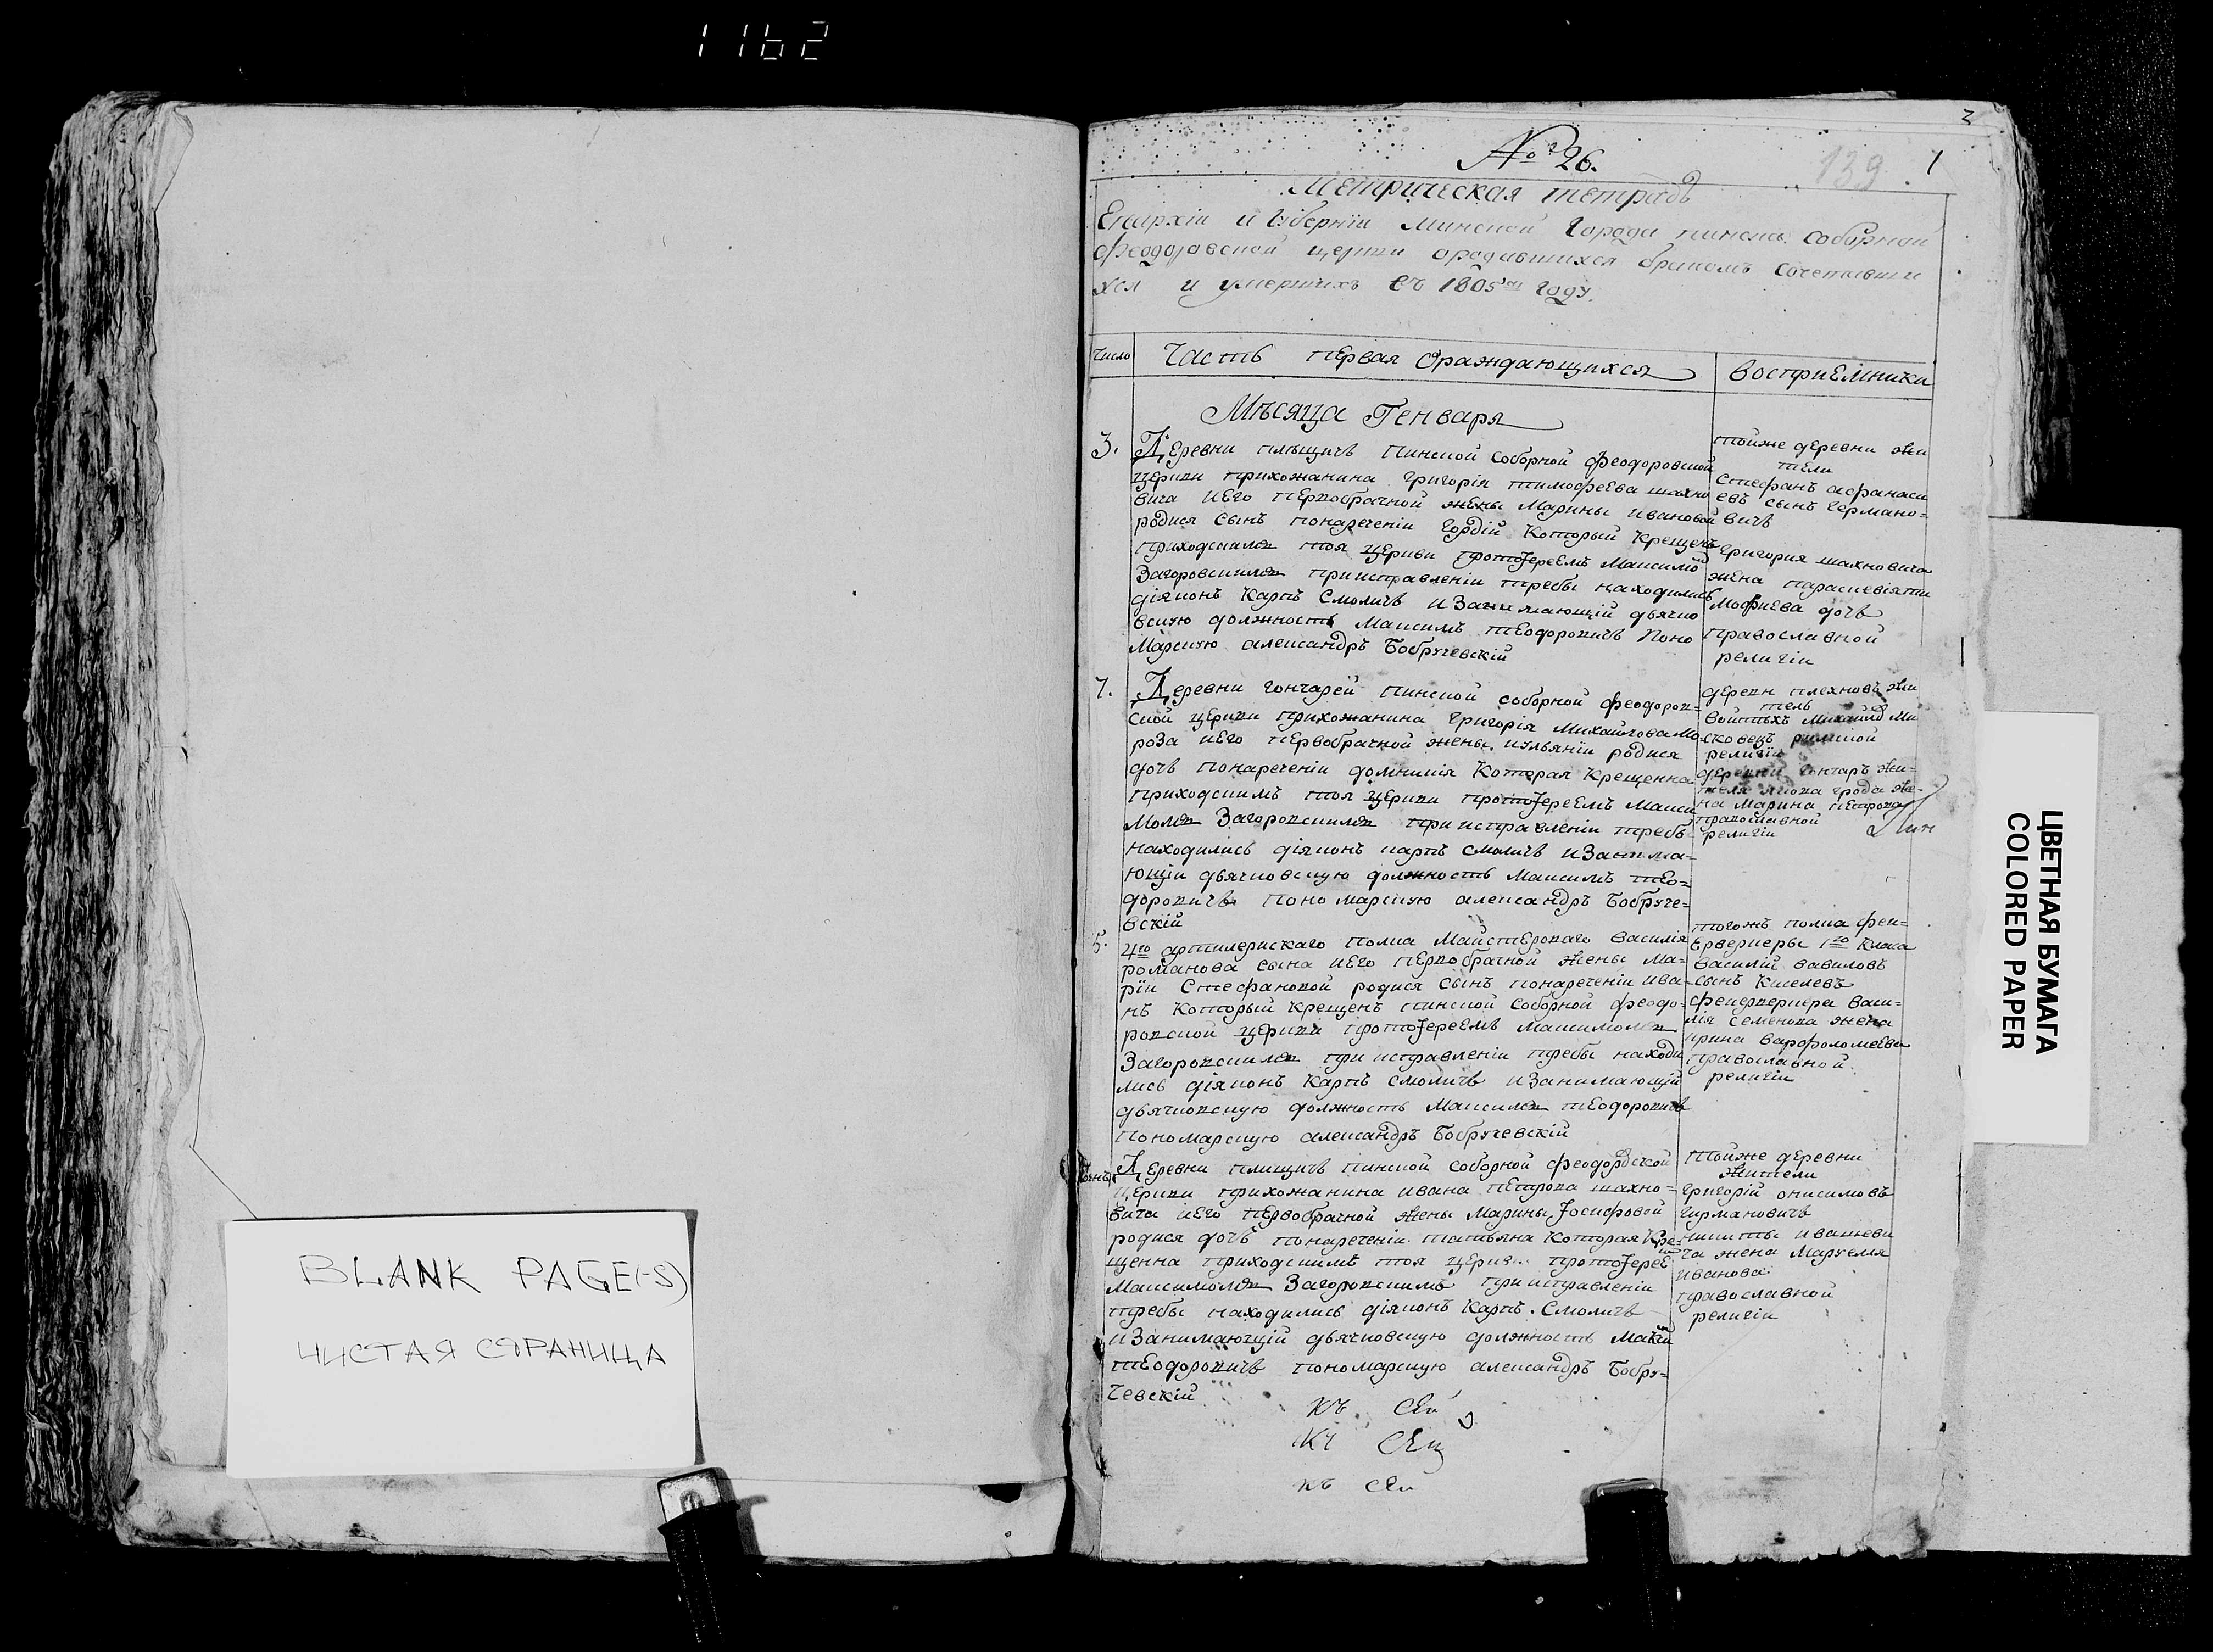 1162
2
№ 26.
139.
1
Метрическая тетрадь
Епархіи и Губерніи Минской Города пинска соборной
феодоровской церкви ородившихся бракомъ сочетавши
хся и умершихъ въ 1805м году.
Число
Часть первая Ораждающихся
Восприемники
Мѣсяца Генваря
3.
Деревни плещичь Пинской соборной феодоровской
церкви прихожанина Григорія тимофеева шахно
вича иего первобрачной жены Марины ивановой
родися сынъ понареченіи Гордій Который Крещенъ
приходскимъ тоя церкви протоIереемъ Максимо
Загоровскимъ приисправленіи требы находились
діяконъ Карпъ Смоличь изанимающій дьячко
вскую должность Максимъ теодоровичь Поно
Марскую александръ Бобручевскій
тойже деревни жи
тели
Стефанъ афанаси
евъ сынъ Германо=
вичь
григория шахновича
жена параскевія ти
мофиева дочь
православной
религіи
7.
Деревни гончарей пинской соборной феодоров=
ской церкви прихожанина Григорія Михайлова Мо
роза иего первобрачной жены иульяніи родися
дочь понареченіи домникія Которая Крещенна
приходскимъ тоя церкви протоIереемъ Макси
Момъ Загоровскимъ приисправленіи требъ
находились діяконъ карпъ смоличь изанима=
ющіи дьячковскую должность Максимъ тео=
доровичь пономарскую александръ Бобруче=
вскій
житель
религіи
деревни гончаръ жи=
на Марина петрова
православной
религіи
5.
4го артилерискаго полка Майстероваго василія
романова сына иего первобрачной жены Ма=
ріи Стефановой родися сынъ понареченіи ива=
нъ Который Крещенъ пинской соборной феодо=
ровской церкви протоIереемъ Максимомъ
Загоровскимъ при исправленіи требы находи
лись діяконъ Карпъ смоличь изанимающій
дьячковскую должность Максимъ теодоровичь
пономарскую александръ Бобручевскій
тогожъ полка феи=
ерверкеры 1го класа
василій вавиловъ
сынъ Киселевъ
феиерверкера васи=
лія семенова жена
ирина варфоломеева
православной
религіи
Деревни плищичь пинской соборной феодоровской
церкви прихожанина ивана петрова шахно=
вича иего первобрачной жены Марины Iосифовой
родися дочь понареченіи татьяна Которая Кре=
щенна приходскимъ тоя церкви протоIерее
Максимомъ Загоровскимъ приисправленіи
требы находились діяконъ Карпъ Смоличь
изанимающій дьячковскую должность Макси
теодоровичь пономарскую александръ Бобру=
чевскій
тойже деревни
жители
григорій онисимовъ
гирмановичь
никиты ивашеви
ча жена Маруемя
иванова
православной
религіи
BLANK PAGE(-S)
ЧИСТАЯ СТРАНИЦА
ЦВЕТНАЯ БУМАГА
COLORED PAPER